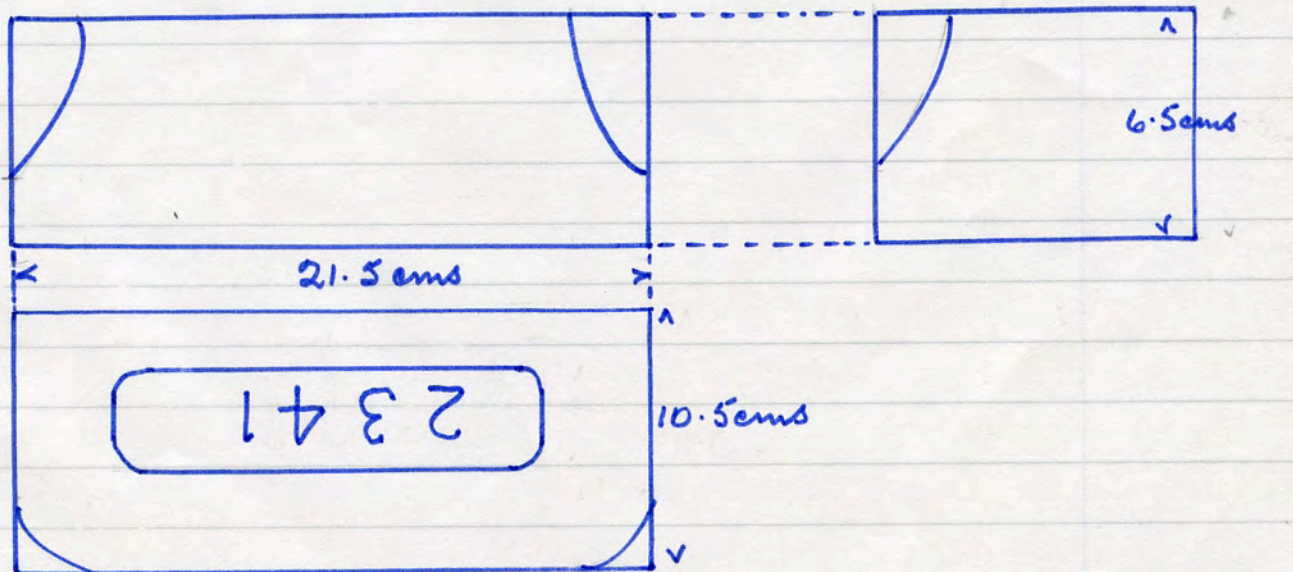 6.5cms
21.5cms
2341
10.5cms